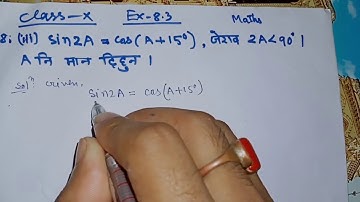 Class-X Ex-8.3 Maths
8: (iii) sin2A = cos(A+15°), जेराव 2A<90° ।
A नि मान दिहुन ।
Solⁿ Given,
sin2A = cos(A+15°)